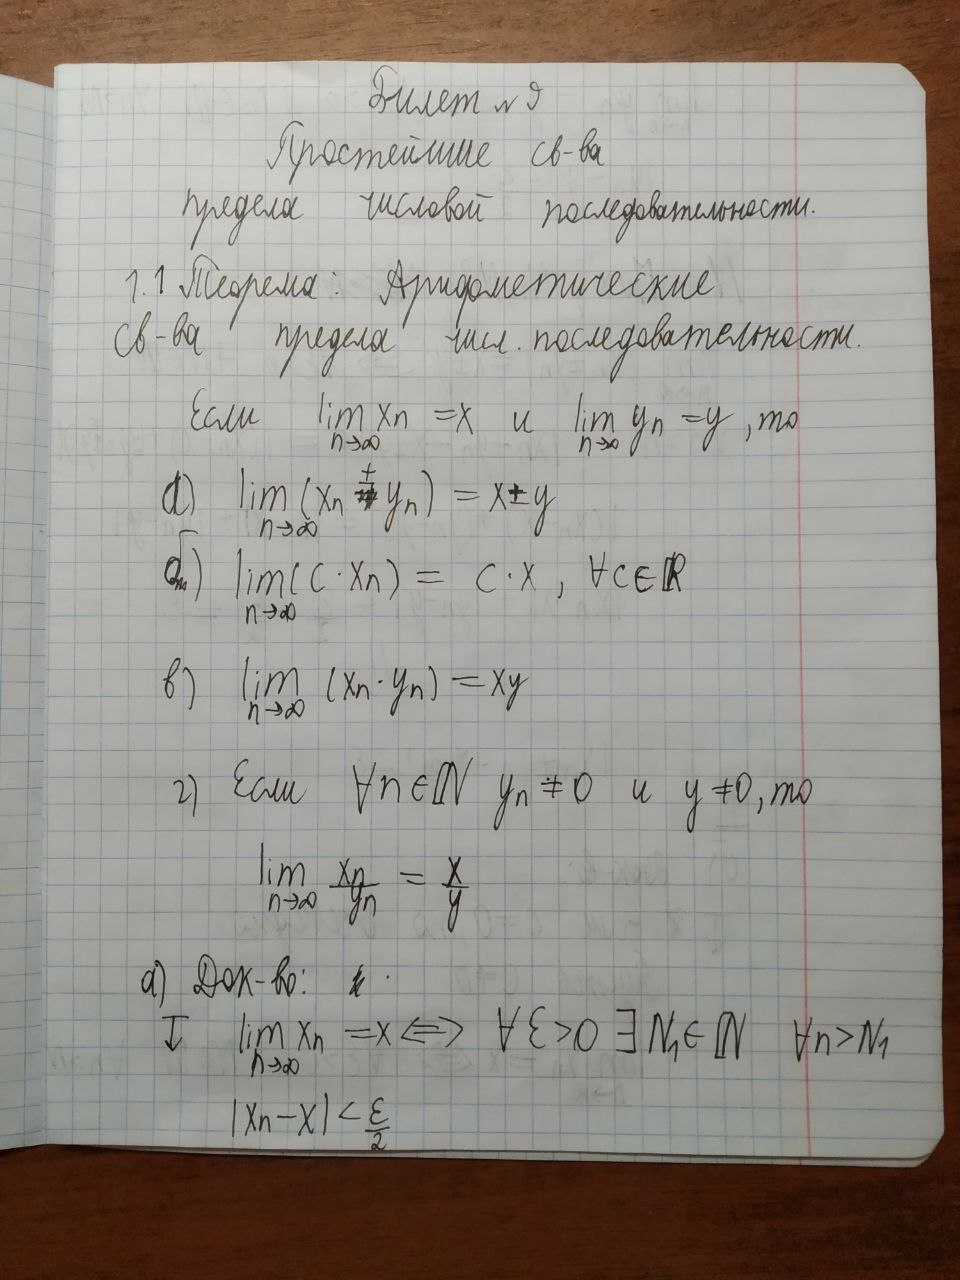 Билет №9
Простейшие св-ва
предела числовой последовательности.
1.1 Теорема: Арифметические
св-ва предела числ. последовательности.
Если lim xn = x и lim yn = y, то
n→∞ n→∞
а) lim (xn ± yn) = x ± y
n→∞
б) lim (c · xn) = c · x, ∀c∈ℝ
n→∞
в) lim (xn · yn) = xy
n→∞
г) Если ∀n∈ℕ yn ≠ 0 и y ≠ 0, то
lim xn/yn = x/y
n→∞
а) Док-во:
I lim xn = x <=> ∀ε<0 ∃N1∋ℕ ∀n>N1
n→∞
|xn - x| < ε/2